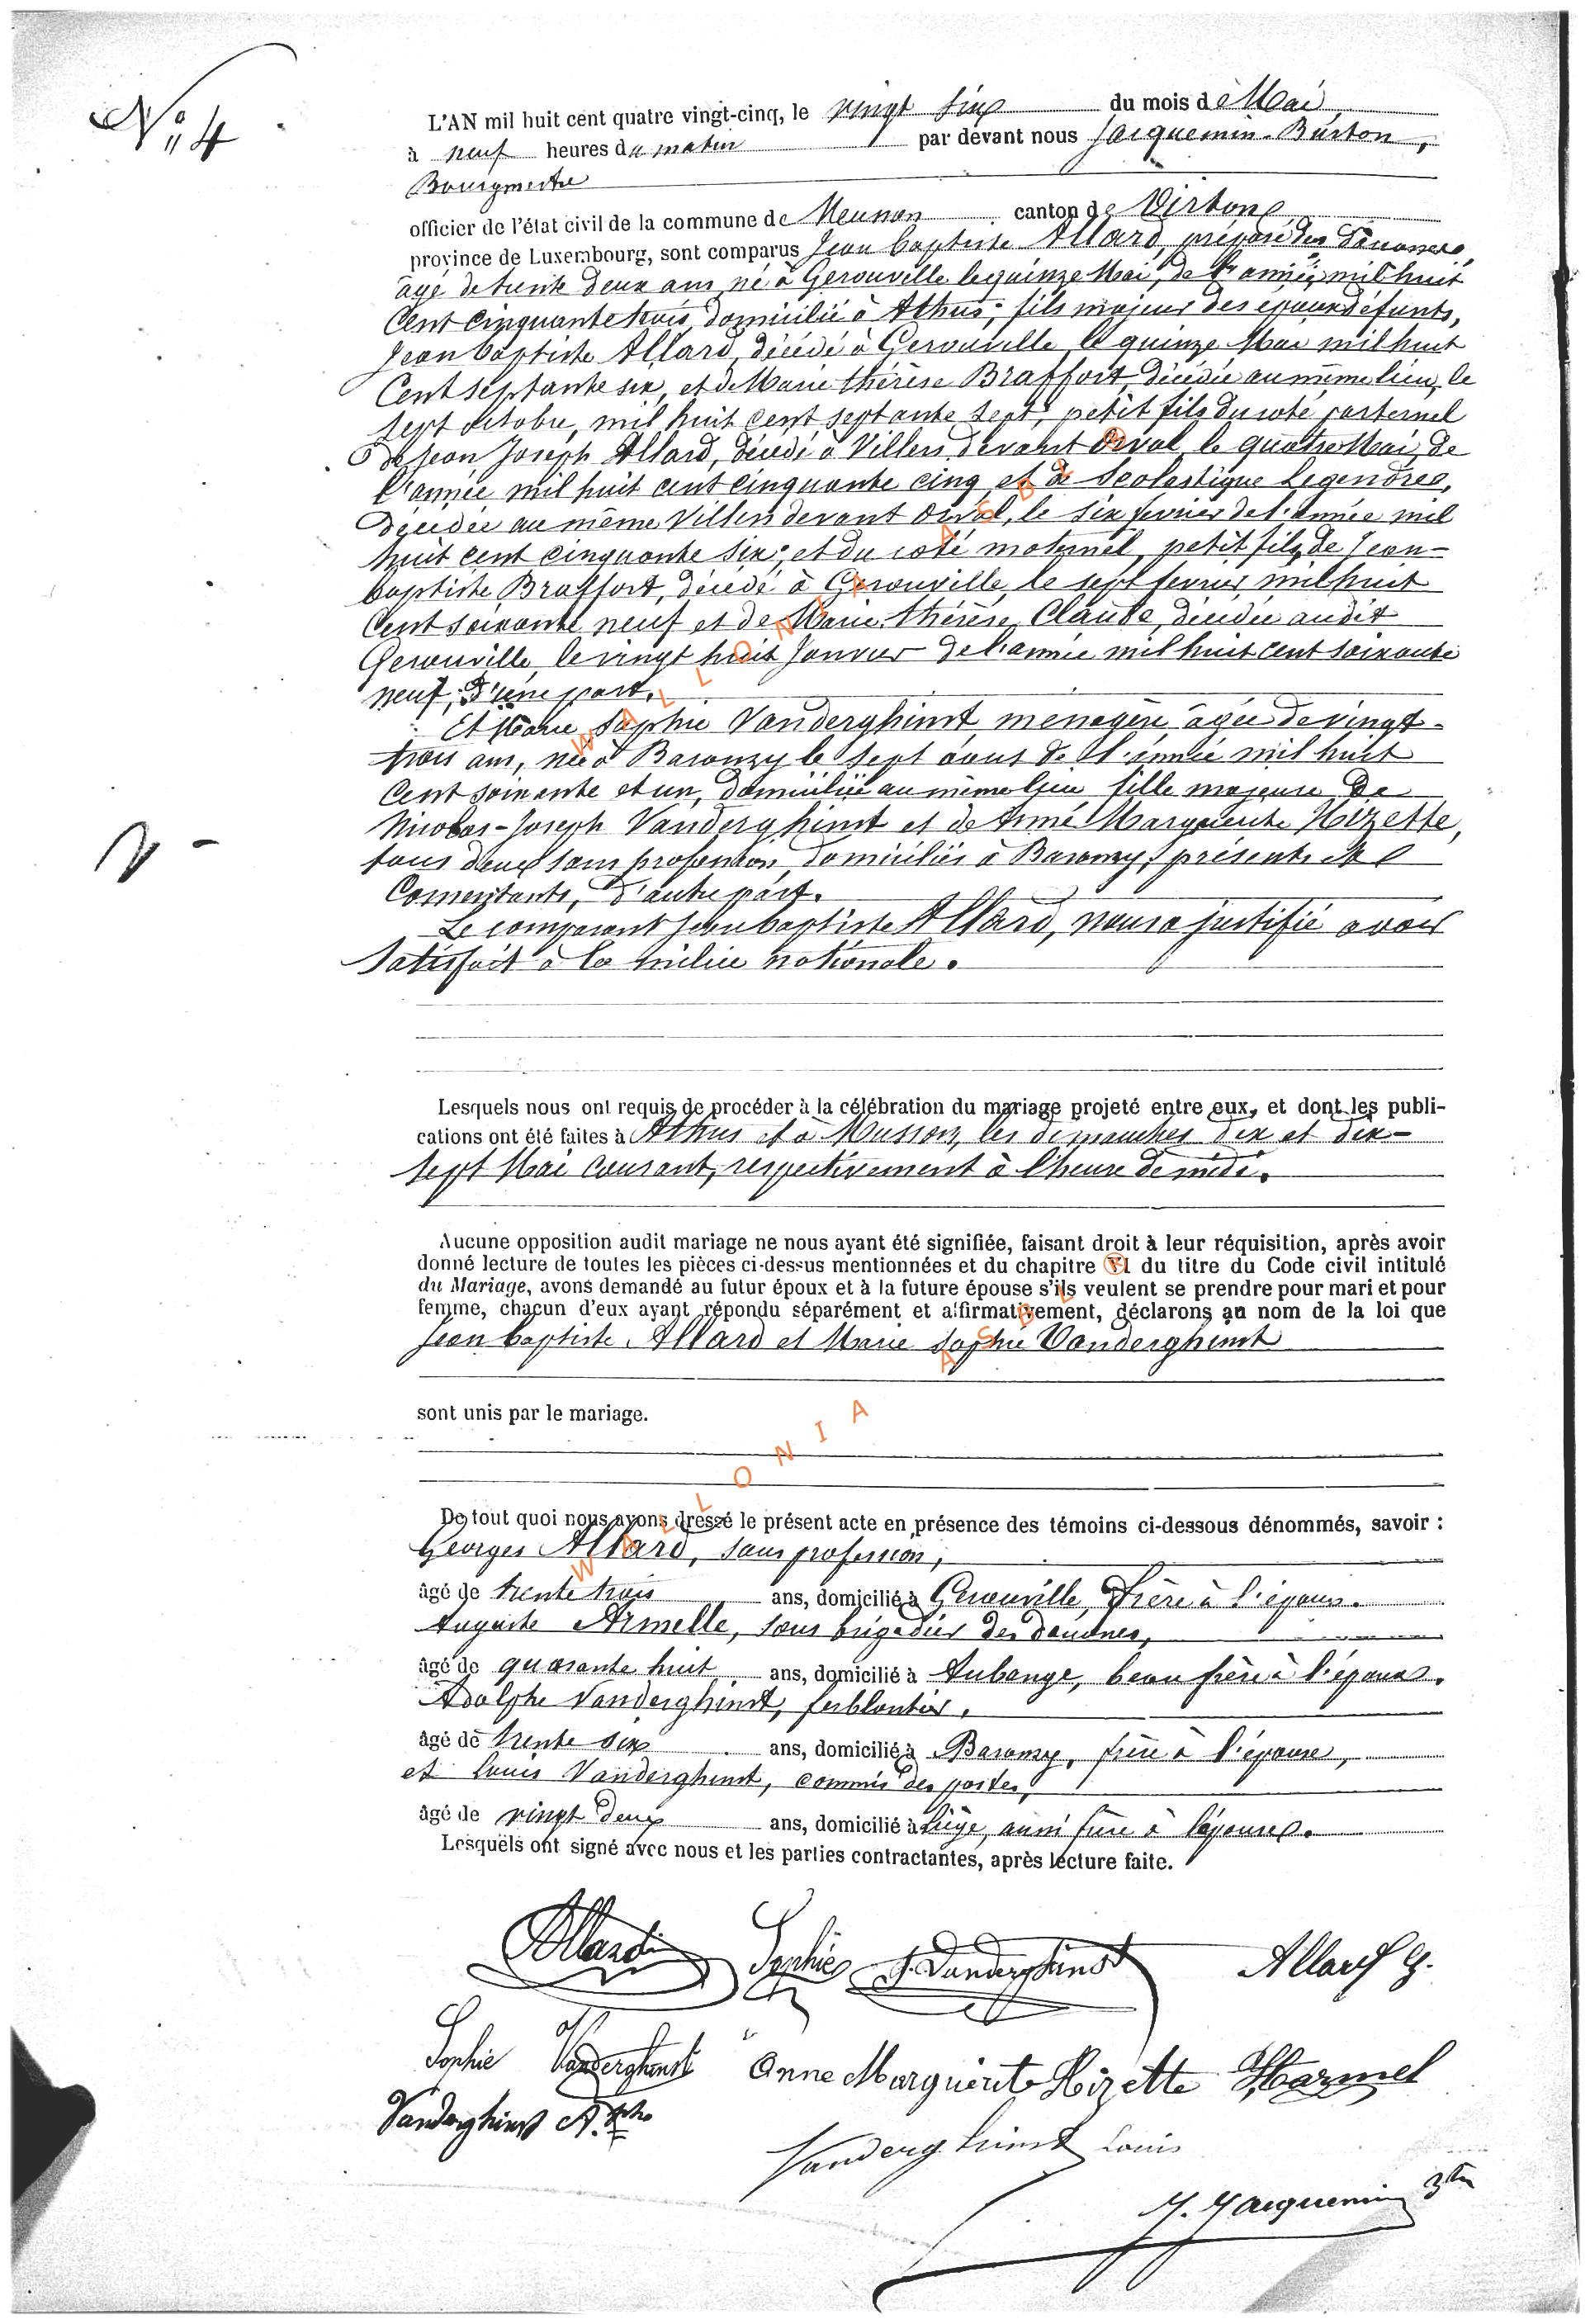 N° 4
L'AN mil huit cent quatre vingt-cinq, le vingt six du mois de Mai
à neuf heures du matin par devant nous Jacquemin-Burton,
Bourgmestre
officier de l'état civil de la commune de Musson canton de Virton
province de Luxembourg, sont comparus Jean baptiste Allard, préposé des douanes,
âgé de trente deux ans, né à Gerouville le quinze Mai, de l'année mil huit
Cent cinquante trois, domicilié à Athus; fils majeur des époux défunts,
Jean baptiste Allard, décédé à Gerouville, le quinze Mai mil huit
Cent septante six, et de Marie thérèse Braffort, décédée au même lieu, le
sept octobre, mil huit cent septante sept; petit fils du coté parternel
de Jean Joseph Allard, décédé à Villers devant Orval, le quatre Mai, de
l'année mil huit cent cinquante cinq et de Scolastique Legendre,
décédée au même Villers devant Orval, le six fevrier de l'année mil
huit cent cinquante six; et du coté maternel, petit fils de Jean-
baptiste Braffort, décédé à Gerouville, le sept fevrier, mil huit
Cent soixante neuf et de Marie thérèse Claude, décédée audit
Gerouville, le vingt huit Janvier de l'année mil huit cent soixante
neuf; d'une part.
Et Marie Sophie Vanderghinst, ménagère, âgée de vingt-
trois ans, née à Baranzy le sept aout de l'année mil huit
Cent soixante et un, domiciliée au même lieu, fille majeure de
Nicolas-Joseph Vanderghinst et de Anne Marguerite Hizette,
tous deux sans profession, domiciliés à Baranzy, présents et
Consentants, d'autre part.
Le comparant Jean baptiste Allard, nous a justifié avoir
Satisfait à la milice nationale.
Lesquels nous ont requis de procéder à la célébration du mariage projeté entre eux, et dont les publi-
cations ont été faites à Athus et à Musson, les dimanches dix et dix-
sept Mai courant, respectivement à l'heure de midi.
Aucune opposition audit mariage ne nous ayant été signifiée, faisant droit à leur réquisition, après avoir
donné lecture de toutes les pièces ci-dessus mentionnées et du chapitre VI du titre du Code civil intitulé
du Mariage, avons demandé au futur époux et à la future épouse s'ils veulent se prendre pour mari et pour
femme, chacun d'eux ayant répondu séparément et affirmativement, déclarons au nom de la loi que
Jean baptiste Allard et Marie Sophie Vanderghinst
sont unis par le mariage.
De tout quoi nous avons dressé le présent acte en présence des témoins ci-dessous dénommés, savoir :
Georges Allard, sans profession,
âgé de trente trois ans, domicilié à Gerouville, frère à l'époux.
Auguste Armelle, sous brigadier des douanes,
âgé de quarante huit ans, domicilié à Aubange, beau frère à l'époux.
Adolphe Vanderghinst, ferblantier,
âgé de trente six ans, domicilié à Baranzy, frère à l'épouse,
et Louis Vanderghinst, commis des postes,
âgé de vingt deux ans, domicilié à Liège, aussi frère à l'épouse.
Lesquels ont signé avec nous et les parties contractantes, après lecture faite.
Allard Sophie J. Vanderghinst Allard G.
Sophie Vanderghinst Anne Marguerite Hizette
Vanderghinst A.
Vanderghinst Louis
J. Jacquemin
WALLONIA ASBL
WALLONIA ASBL